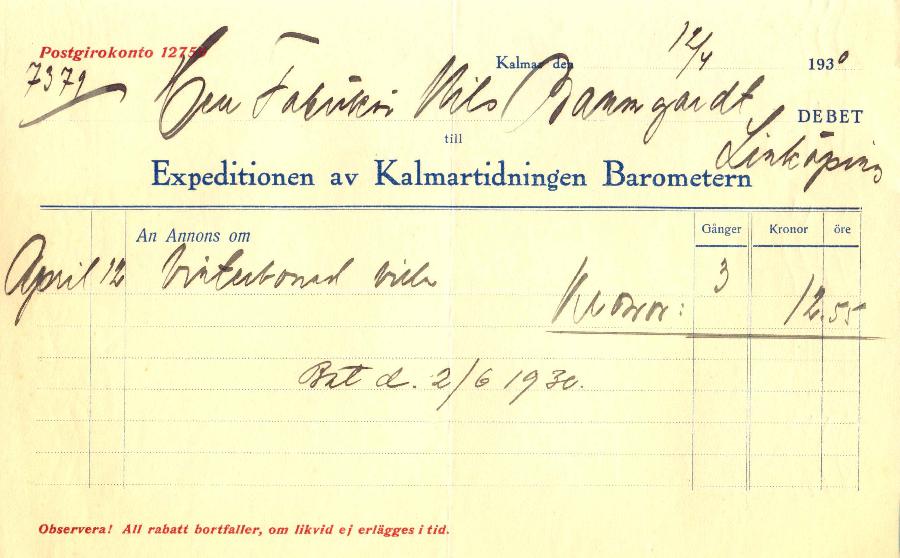 Postgirokonto 1275
Kalmar den 12/4 1930
7379
Herr Fabrikör Nils Baumgardt DEBET
till
Linköping
Expeditionen av Kalmartidningen Barometern
Gånger Kronor öre
An Annons om
April 12 Vinterbonad villa 3
Kronor: 12.55
Bet d. 2/6 1930.
Observera! All rabatt bortfaller, om likvid ej erlägges i tid.